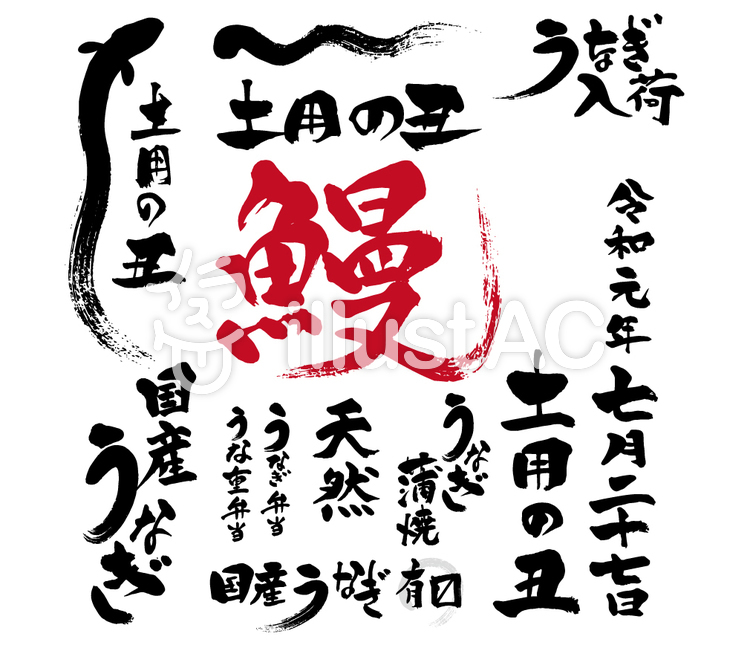 土用の丑
土用の丑
うなぎ
入荷
鰻
令和元年
七月二十七日
土用の丑
illustAC
国産
うなぎ
うな重弁当
うなぎ弁当
天然
うなぎ
蒲焼
国産うなぎ
有〼